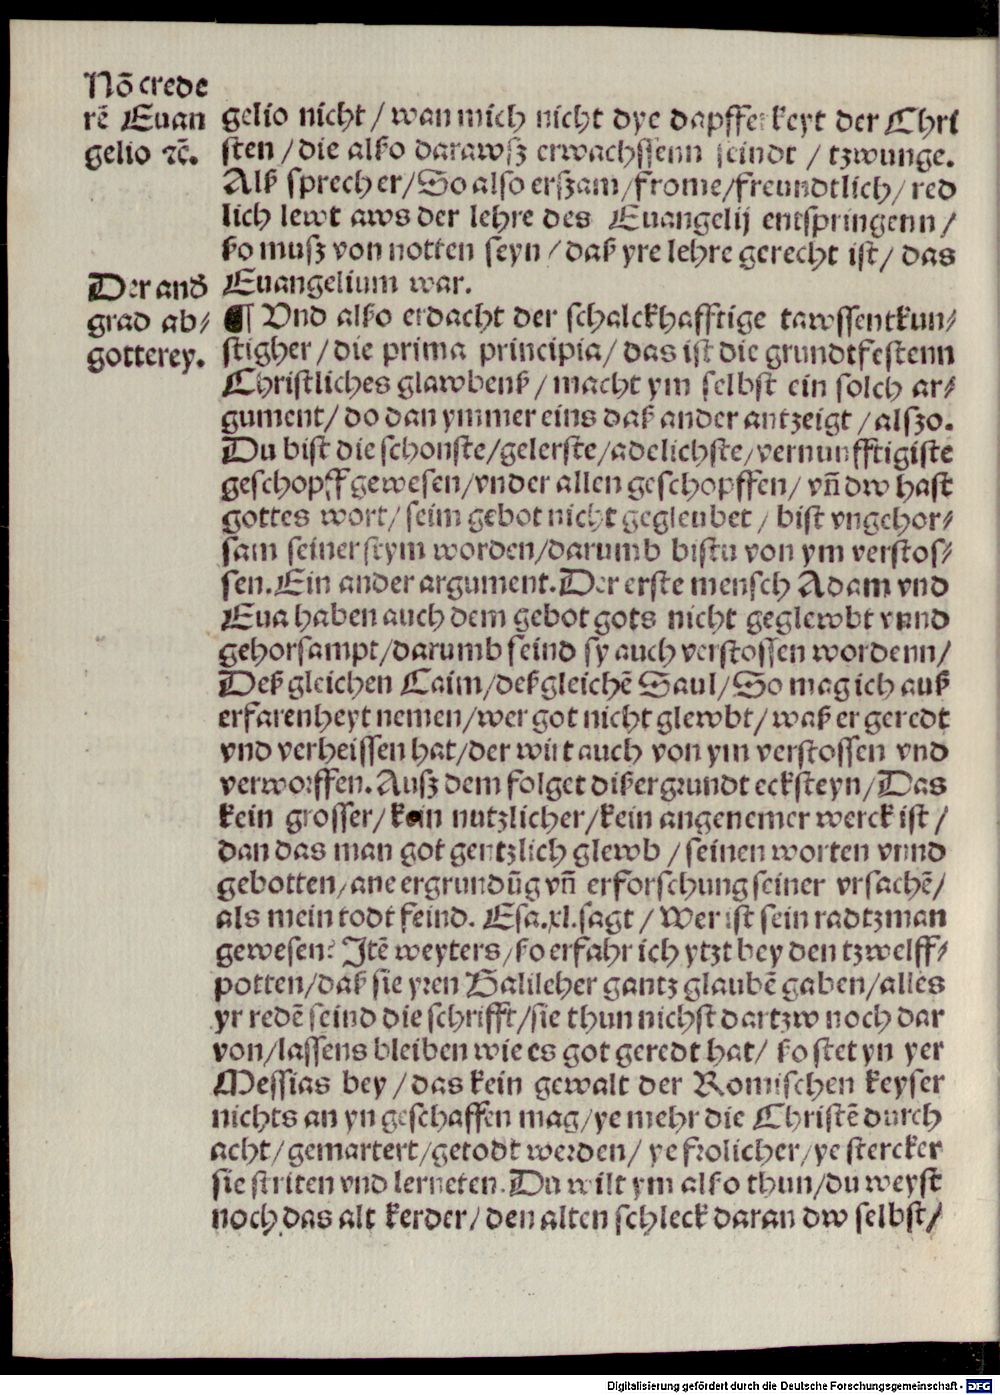 Nō crede
rē Euan
gelio ꝛc̄.
gelio nicht / wan mich nicht dye dapfferkeyt der Chri
sten / die alſo darawſz erwachssenn seindt / tzwunge.
Alß sprech er / So also erſzam / frome / freundtlich / red
lich lewt aws der lehre des Euangelij entspringenn /
ßo muſz von notten seyn / daß yre lehre gerecht ist / das
Euangelium war.
Der and̄
grad ab⸗
gotterey.
¶ Vnd alßo erdacht der schalckhafftige tawssentkun⸗
stigher / die prima principia / das ist die grundtfestenn
Christliches glawbenß / macht ym selbst ein solch ar⸗
gument / do dan ymmer eins daß ander antzeigt / alſzo.
Du bist die schonste / gelerste / adelichste / vernunfftigiste
geschopff gewesen / vnder allen geschopffen / vn̄ dw hast
gottes wort / seim gebot nicht gegleubet / bist vngehor⸗
sam seiner stym worden / darumb bistu von ym verstos⸗
sen. Ein ander argument. Der erste mensch Adam vnd
Eua haben auch dem gebot gots nicht geglewbt vnnd
gehorsampt / darumb seind sy auch verstossen wordenn /
Deß gleichen Caim / deß gleichē Saul / So mag ich auß
erfarenheyt nemen / wer got nicht glewbt / waß er geredt
vnd verheissen hat / der wirt auch von ym verstossen vnd
verworffen. Auſz dem folget dißer grundt ecksteyn / Das
kein grosser / kein nutzlicher / kein angenemer werck ist /
dan das man got gentzlich glewb / seinen worten vnnd
gebotten / ane ergrundūg vn̄ erforschung seiner vrsachē /
als mein todt feind. Esa.xl. sagt / Wer ist sein radtzman
gewesen? Itē weyters / ßo erfahr ich ytzt bey den tzwelff⸗
potten / daß sie yren Galileher gantz glaubē gaben / alles
yr redē seind die schrifft / sie thun nichst dartzw noch dar
von / lassens bleiben wie es got geredt hat / ßo stet yn yer
Messias bey / das kein gewalt der Romischen keyser
nichts an yn geschaffen mag / ye mehr die Christē durch
acht / gemartert / getodt werden / ye frolicher / ye stercker
sie striten vnd lerneten. Du wilt ym alßo thun / du weyst
noch das alt kerder / den alten schleck daran dw selbst /
Digitalisierung gefördert durch die Deutsche Forschungsgemeinschaft - DFG